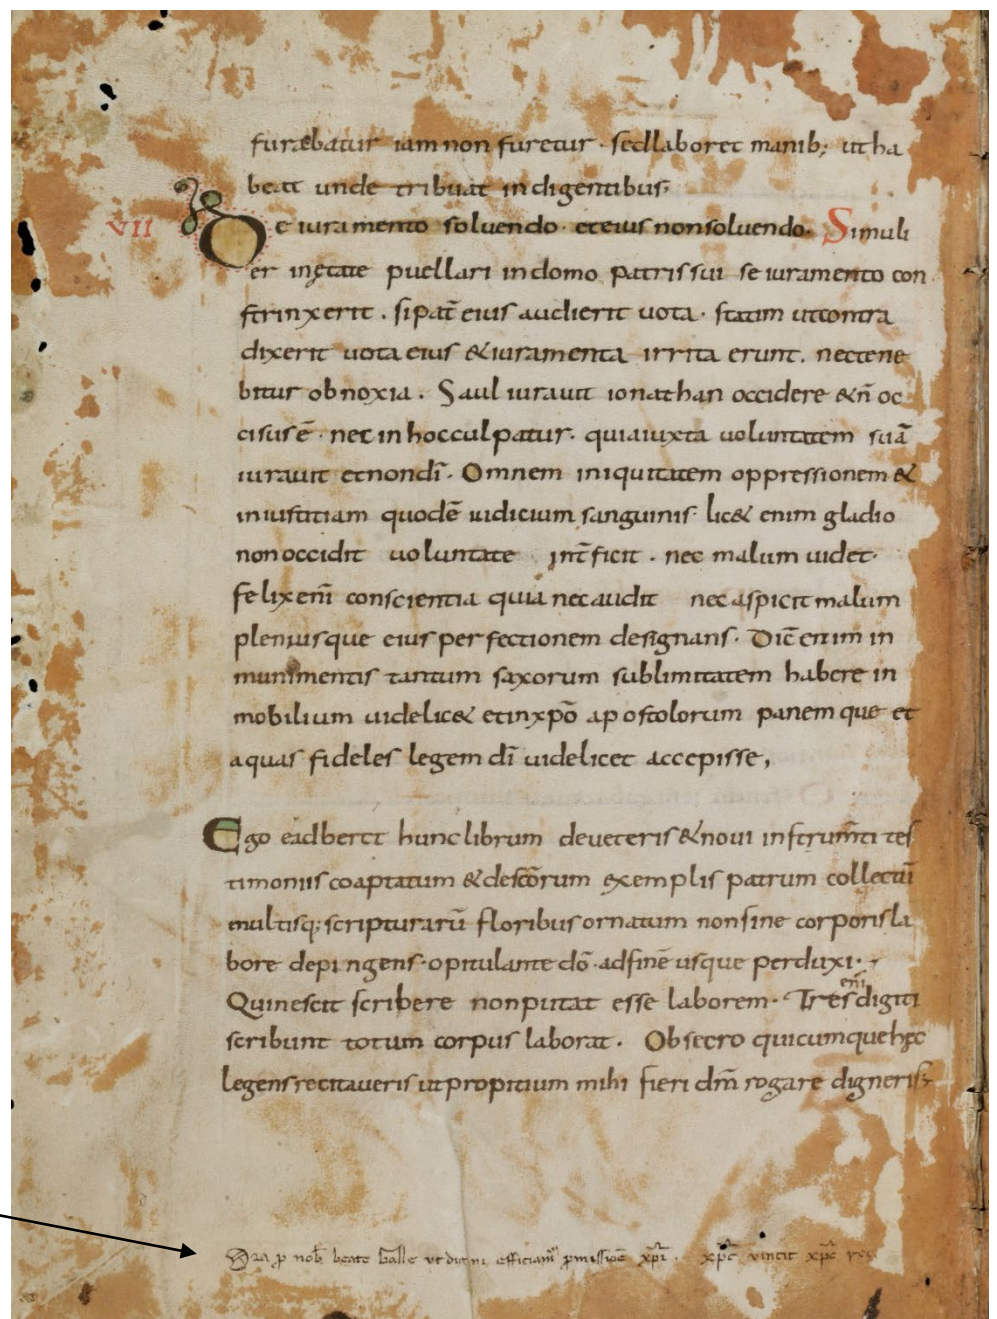 furabatur iam non furetur · sed laboret manib; ut ha
beat unde tribuat indigentibus;
VII De iuramento soluendo · et eius non soluendo. Si muli
er in ętate puellari in domo patris sui se iuramento con
strinxerit . si pat̄ eius audierit uota · statim ut contra
dixerit uota eius & iuramenta irrita erunt . nec tene
bitur obnoxia . Saul iurauit ionathan occidere & n̄ oc
cisus ē · nec in hoc culpatur · quia iuxta uoluntatem suā
iurauit et non dī · Omnem iniquitatem oppressionem &
iniustitiam quodē iudicium sanguinis · lic& enim gladio
non occidit uoluntate int̄ficit . nec malum uidet ·
felix enī conscientia quia nec audit nec aspicit malum
plenius que eius perfectionem designans · Dic̄ enim in
munimentis tantum saxorum sublimitatem habere in
mobilium uidelic& et in xp̄o apostolorum panem que et
aquas fideles legem dī uidelicet accepisse,
Ego eadberct hunc librum de ueteris & noui instrum̄ti tes
timoniis coaptatum & descōrum exemplis patrum collectū
multisq; scripturarū floribus ornatum non sine corporis la
bore depingens · opitulante dō · ad finē usque perduxi ·
Qui nescit scribere non putat esse laborem · Tres enī digiti
scribunt totum corpus laborat . Obsecro quicumque hęc
legens recitaueris ut propitium mihi fieri dm̄ rogare digneris;
Ora p nob̄ beate Galle ut digni efficiam̄ pmissiōe xp̄i . xp̄c vincit xp̄c